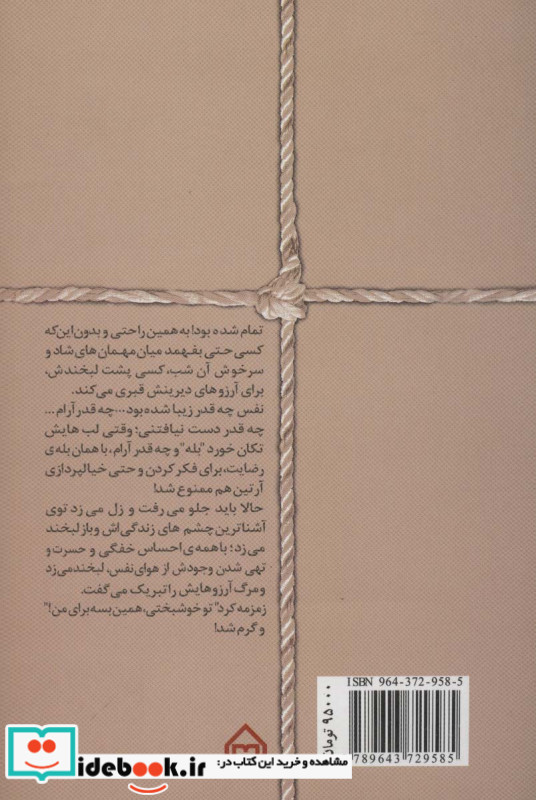 تمام شده بود! به همین راحتی و بدون این‌که
کسی حتی بفهمد میان مهمان های شاد و
سرخوش آن شب، کسی پشت لبخندش،
برای آرزوهای دیرینش قبری می‌کند.
نفس چه قدر زیبا شده بود...چه قدر آرام...
چه قدر دست نیافتنی؛ وقتی لب هایش
تکان خورد "بله" و چه قدر آرام، با همان بله‌ی
رضایت، برای فکر کردن و حتی خیالپردازی
آرتین هم ممنوع شد!
حالا باید جلو می رفت و زل می زد توی
آشناترین چشم های زندگی‌اش و باز لبخند
می‌زد؛ با همه‌ی احساس خفگی و حسرت و
تهی شدن وجودش از هوای نفس، لبخند می‌زد
و مرگ آرزوهایش را تبریک می‌گفت.
زمزمه کرد" تو خوشبختی، همین بسه برای من!"
و گرم شد!
ISBN 964-372-958-5
789643 729585
۹۵۰۰۰ تومان
مشاهده و خرید این کتاب در:
idebook.ir